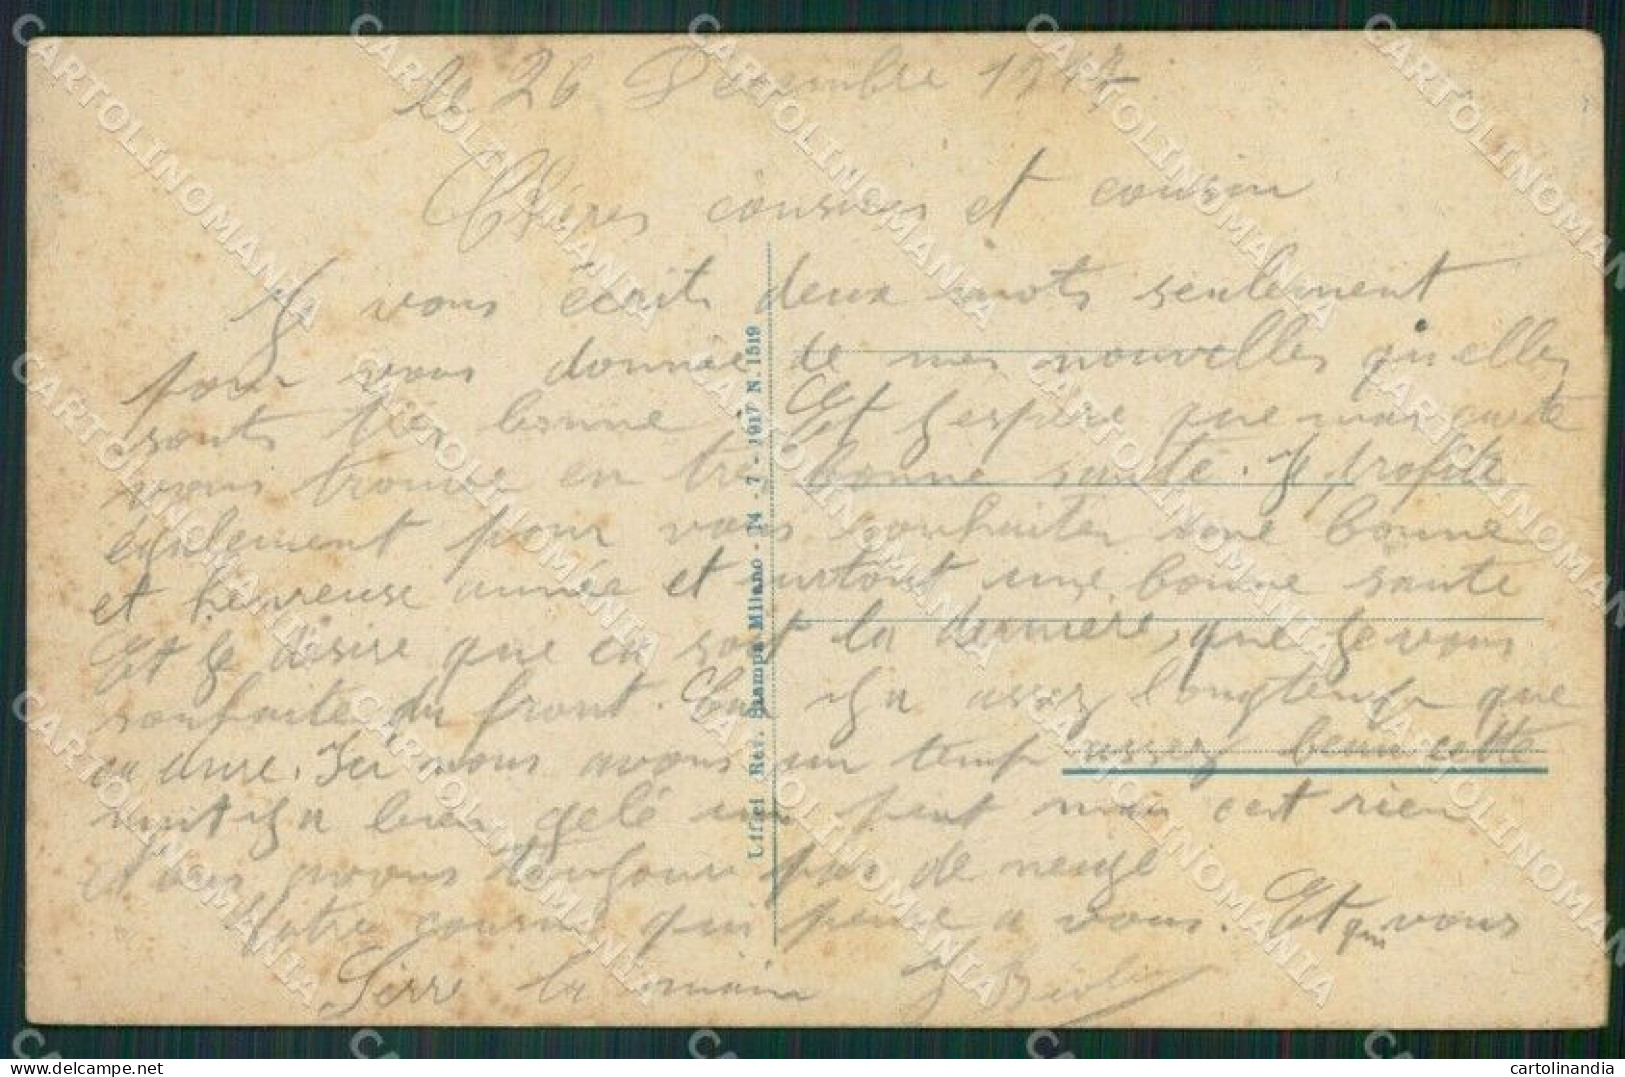 le 26 Decembre 1917
Chéres cousines et cousin
Je vous écrits deux mots seulement
pour vous donnée de mes nouvelles qu'elles
sonts très bonne Et J'espère que ma carte
vous trouve en très bonne santé. Je profite
également pour vous souhaiter une bonne
et heureuse année et surtout une bonne sante
Et Je désire que ca soit la derniere, que Je vous
souhaite du front. Car il y a assez longtemps que
ca dure. Ici nous avons un temp assez beau cette
nuit il y a bien gelé un peut mais cest rien
et nous avons toujours pas de neige
Votre cousin qui pense a vous. Et qui vous
Serre la main J
Uffici Rev. Stampa Milano - 24 - 7 - 1917 N. 1519
CARTOLINOMANIA
cartolinandia